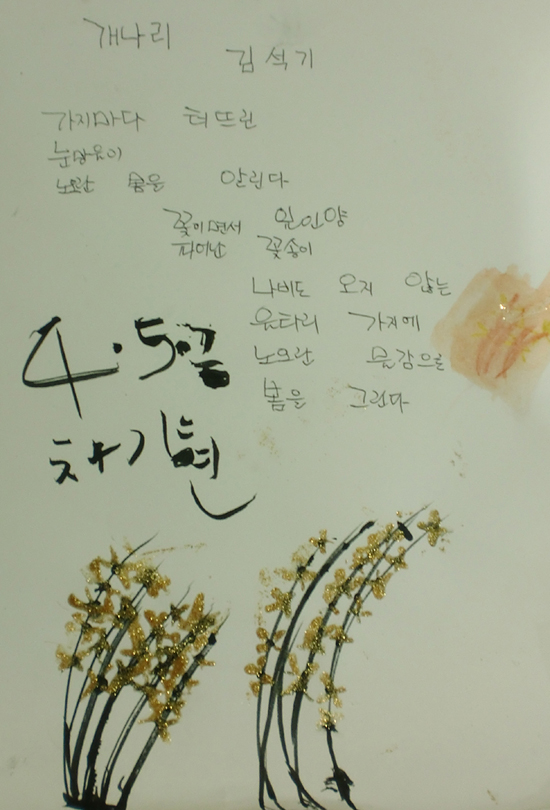 개나리
김석기
가지마다 터뜨린
눈망울이
노오란 숨을 알린다
꽃이면서 잎인양
피어난 꽃송이
나비도 오지 않는
울타리 가지에
노오란 물감으로
봄을 그린다
4.5 금
차기현